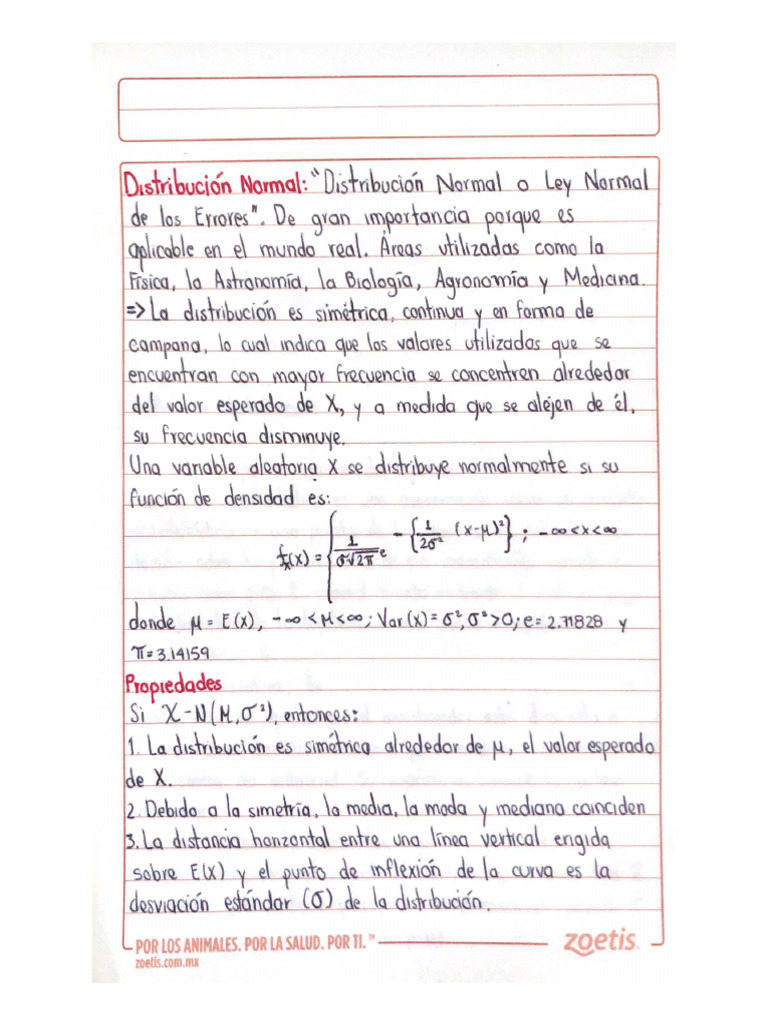 Distribución Normal: "Distribución Normal o Ley Normal
de los Errores". De gran importancia porque es
aplicable en el mundo real. Áreas utilizadas como la
Física, la Astronomía, la Biología, Agronomía y Medicina.
=> La distribución es simétrica, continua y en forma de
campana, lo cual indica que los valores utilizados que se
encuentran con mayor frecuencia se concentren alrededor
del valor esperado de X, y a medida que se alejen de él,
su frecuencia disminuye.
Una variable aleatoria X se distribuye normalmente si su
función de densidad es:
fx(x) = { 1/(σ√2π) e -{1/2σ² (x-μ)²} ; -∞<x<∞
donde μ = E(x), -∞<μ<∞; Var(x)=σ², σ²>0; e= 2.71828 y
π= 3.14159
Propiedades
Si X-N(μ, σ²), entonces:
1. La distribución es simétrica alrededor de μ, el valor esperado
de X.
2. Debido a la simetría, la media, la moda y mediana coinciden
3. La distancia horizontal entre una línea vertical erigida
sobre E(x) y el punto de inflexión de la curva es la
desviación estándar (σ) de la distribución.
POR LOS ANIMALES. POR LA SALUD. POR TI.™ zoetis
zoetis.com.mx